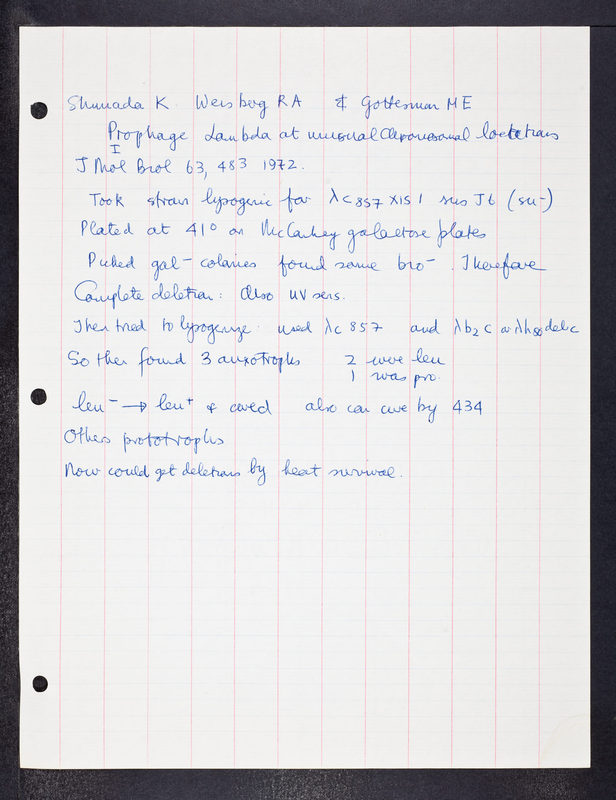 Shimada K. Weisberg RA & Gottesman ME
Prophage Lambda at unusual Chromosomal locations
I
J Mol Biol 63, 483 1972.
Took strain lysogenic for λc857 xis1 sus J6 (su-)
Plated at 41° on McConkey galactose plates
Picked gal- colonies found some bio-. Therefore
Complete deletion: Also UV sens.
Then tried to lysogenize. used λc857 and λb2c or λh80delc
So then found 3 auxotrophs 2 were leu
1 was pro.
leu- → leu+ & cured also can cure by 434
Others prototrophs
Now could get deletions by heat survival.